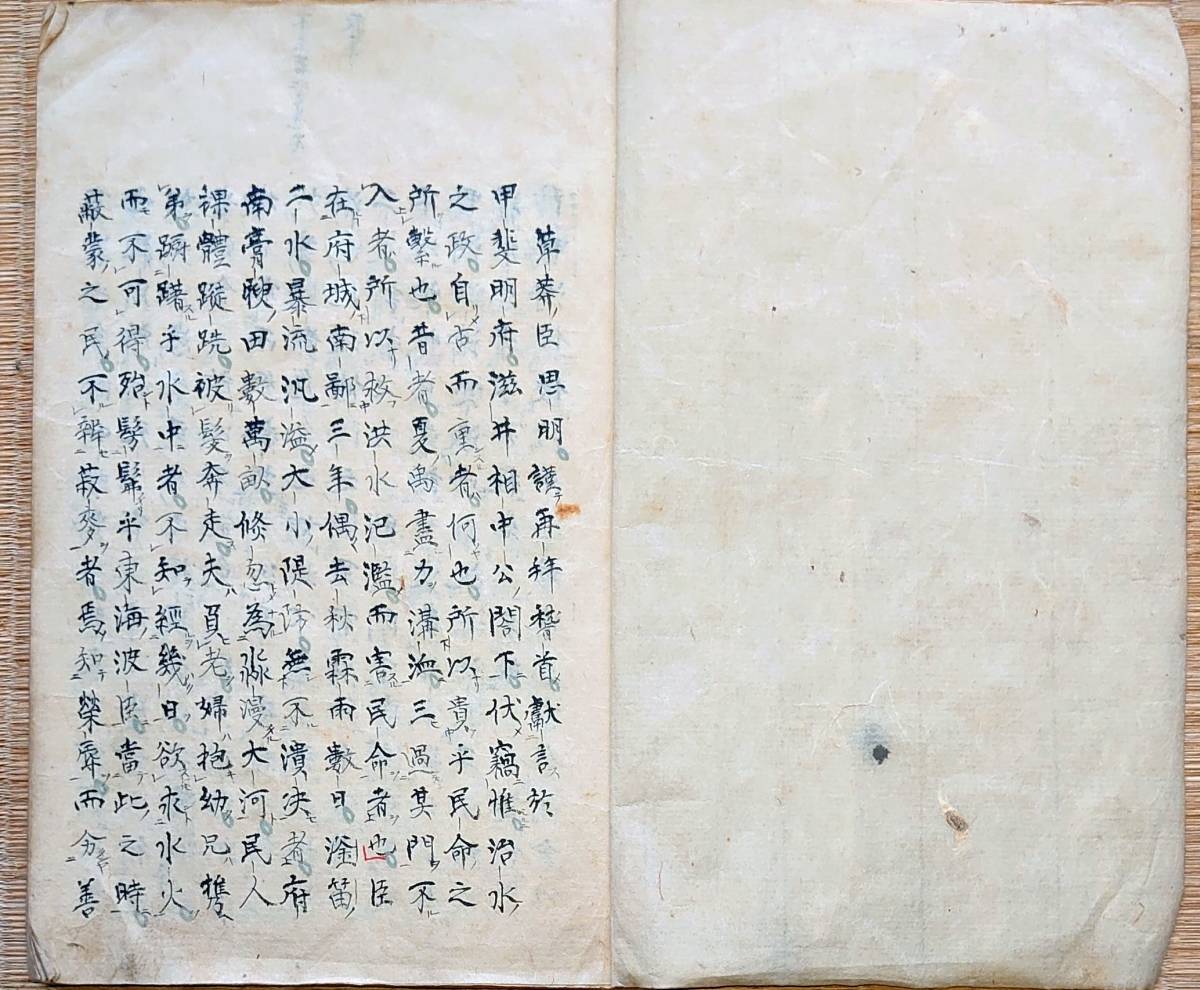 草莽臣思明謹再拜稽首獻言於
甲斐明府滋井相中公閤下伏竊惟治水
之政自古而重者何也所以貴乎民命之
所繫也昔者夏禹盡力溝洫三過其門不
入者所以救洪水氾濫而害民命者也臣
在府城南鄙三年偶去秋霖雨數日滏笛
二水暴流汎溢大小隄防無不潰決者府
南膏腴田數萬畝倏忽為淼漫大河民人
裸體蹤跣被髮奔走夫負老婦抱幼兄攜
弟躑躇乎水中者不知經幾日欲求水火
而不可得殆髣髴乎東海波臣當此之時
蔽蒙之民不辨菽麥者焉知榮辱而分善